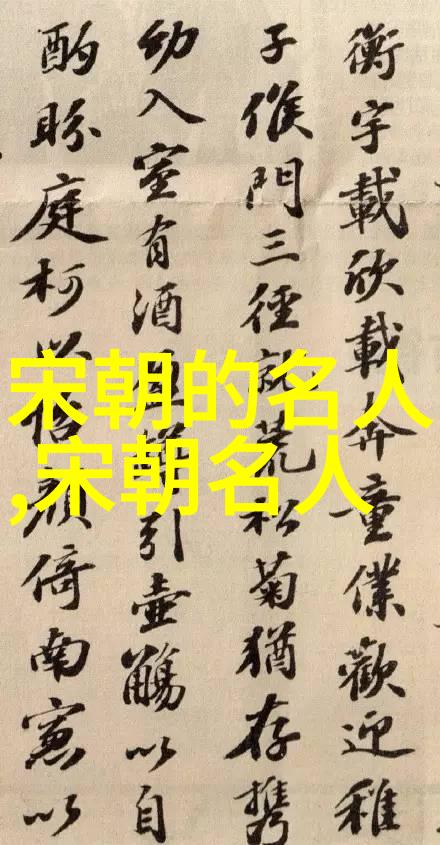 衡宇載欣載奔童僕歡迎稚
子候門三徑就荒松菊猶存携
幼入室有酒盈樽引壺觴以自
酌眄庭柯以怡顔倚南窓以
宋朝的名人
,宋朝名人